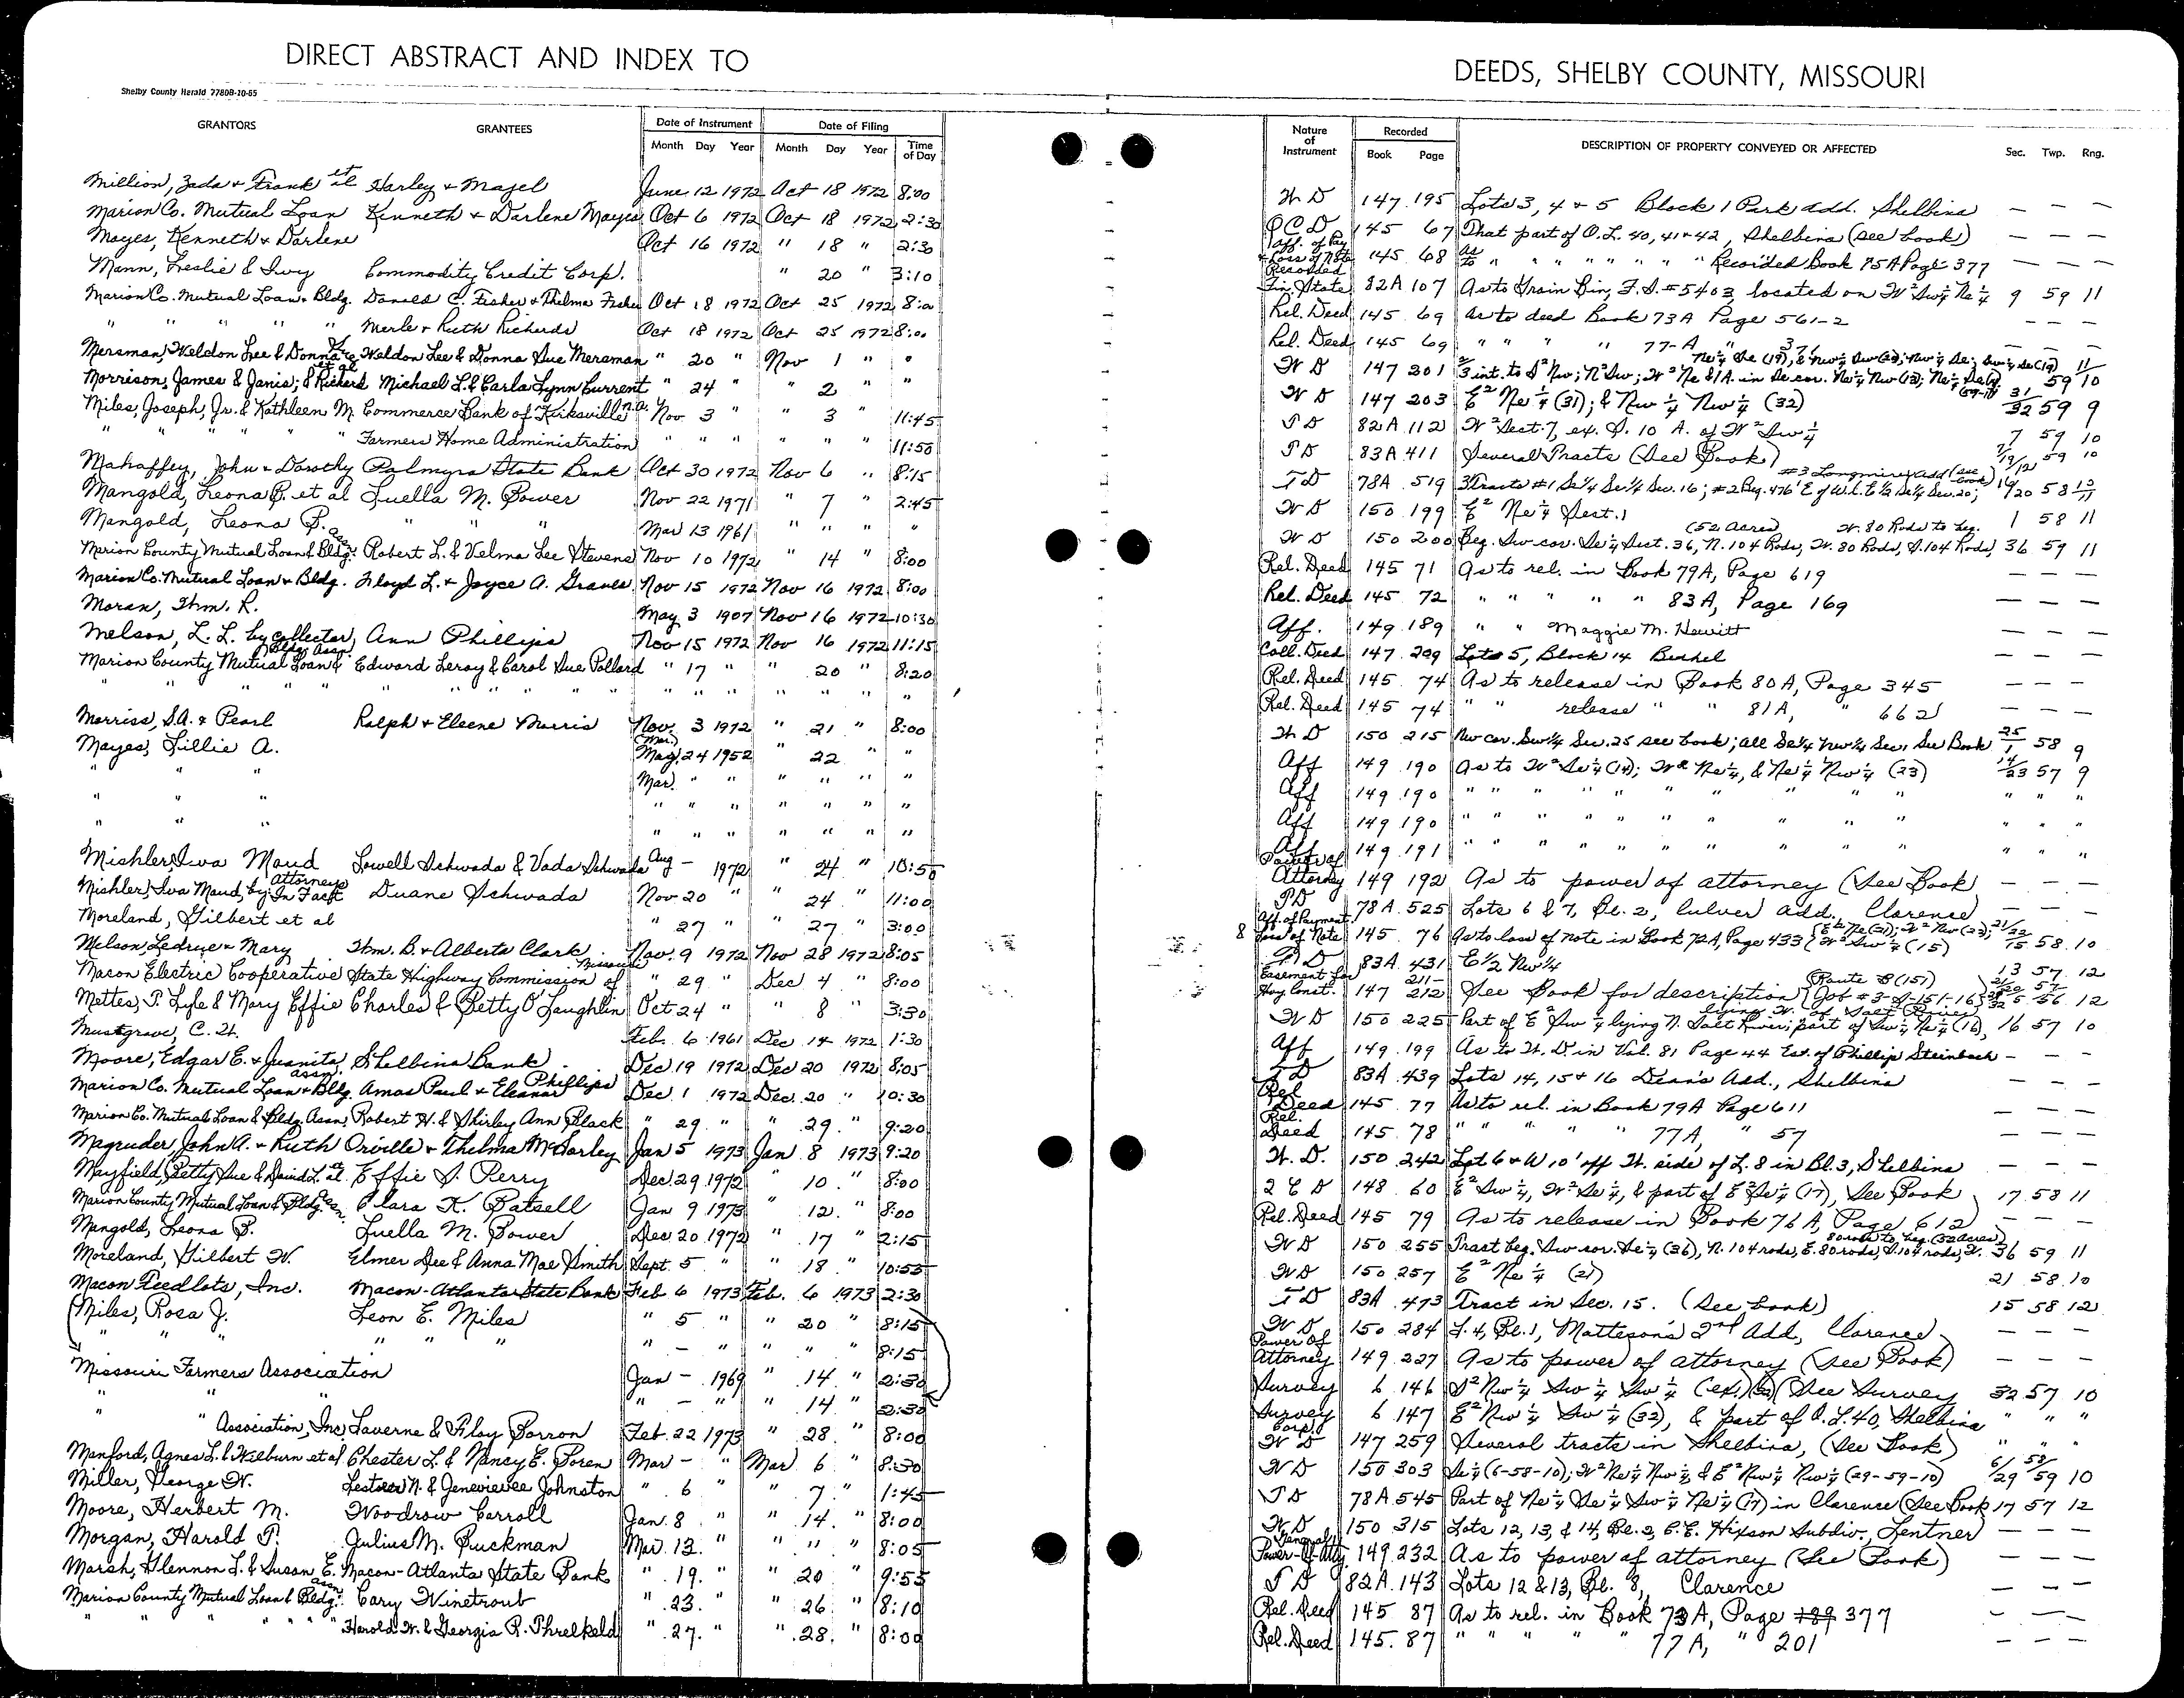 DIRECT ABSTRACT AND INDEX TO
Shelby County Herald 77808-10-65
GRANTORS GRANTEES Date of Instrument Date of Filing
Month Day Year Month Day Year Time of Day
Million, Zada & Frank et al Harley & Mazel June 12 1972 Oct 18 1972 8:00
Marion Co. Mutual Loan Kenneth & Darlene Mayes Oct 6 1972 Oct 18 1972 2:30
Mayes, Kenneth & Darlene Oct 16 1972 " 18 " 2:30
Mann, Leslie & Ivy Commodity Credit Corp. " 20 " 3:10
Marion Co. Mutual Loan & Bldg. Donald C. Fisher & Thelma Fisher Oct 18 1972 Oct 25 1972 8:00
" " " " " Merle & Ruth Richards Oct 18 1972 Oct 25 1972 8:00
Mersman, Weldon Lee & Donna Weldon Lee & Donna Sue Mersman " 20 " Nov 1 " "
Morrison, James & Janis; & Richard et al Michael L. & Carla Lynn Current " 24 " " 2 " "
Miles, Joseph, Jr. & Kathleen M. Commerce Bank of Kirksville n.a. Nov 3 " " 3 " 11:45
" " " " Farmers Home Administration " " " " " " 11:50
Mahaffey, John & Dorothy Palmyra State Bank Oct 30 1972 Nov 6 " 8:15
Mangold, Leona P. et al Luella M. Power Nov 22 1971 " 7 " 2:45
Mangold, Leona P. " " " Mar 13 1961 " " " "
Marion County Mutual Loan & Bldg. Assn. Robert L. & Velma Lee Stevens Nov 10 1972 " 14 " 8:00
Marion Co. Mutual Loan & Bldg. Floyd L. & Joyce A. Graves Nov 15 1972 Nov 16 1972 8:00
Moran, Thm. R. May 3 1907 Nov 16 1972 10:30
Melson, L. L. by collector, Ann Phillips Nov 15 1972 Nov 16 1972 11:15
Marion County Mutual Loan & Bldg. Assn. Edward Leroy & Carol Sue Pollard " 17 " " 20 " 8:20
" " " " " " " " " " " " " " " "
Morriss, S.A. & Pearl Ralph & Eleene Morris Nov. 3 1972 " 21 " 8:00
Mayes, Lillie A. (Mar.) May 24 1952 " 22 " "
" " Mar. " " " " " "
" " " " " " " " "
" " " " " " " " "
Mishler, Iva Maud Lowell Schwada & Vada Schwada Aug – 1972 " 24 " 10:50
Mishler, Iva Maud, by Attorney In Fact Duane Schwada Nov 20 " " 24 " 11:00
Moreland, Gilbert et al " 27 " " 27 " 3:00
Melson, Ledrue & Mary Thm. B. & Alberta Clark Nov. 9 1972 Nov 28 1972 8:05
Macon Electric Cooperative State Highway Commission of Missouri " 29 " Dec 4 " 8:00
Mettes, P. Lyle & Mary Effie Charles & Betty O'Laughlin Oct 24 " " 8 " 3:30
Musgrave, C. H. Feb. 6 1961 Dec 14 1972 1:30
Moore, Edgar E. & Juanita Shelbina Bank Dec 19 1972 Dec 20 1972 8:05
Marion Co. Mutual Loan & Bldg. Assn. Amos Paul & Eleanor Phillips Dec. 1 1972 Dec. 20 " 10:30
Marion Co. Mutual Loan & Bldg. Assn. Robert H. & Shirley Ann Black " 29. " " 29. " 9:20
Magruder, John A. & Ruth Orville & Thelma McHarley Jan 5 1973 Jan 8 1973 9:20
Mayfield, Betty Sue & David L. et al. Effie S. Perry Dec. 29 1972 " 10. " 8:00
Marion County Mutual Loan & Bldg. Assn. Clara K. Batsell Jan 9 1973 " 12. " 8:00
Mangold, Leona P. Luella M. Power Dec 20 1972 " 17 " 2:15
Moreland, Gilbert W. Elmer Dee & Anna Mae Smith Sept. 5 " " 18 " 10:55
Macon Feedlots, Inc. Macon-Atlanta State Bank Feb 6 1973 Feb. 6 1973 2:30
Miles, Rosa J. Leon E. Miles " 5 " " 20 " 8:15
" " " " " " – " " " " 8:15
Missouri Farmers Association Jan – 1969 " 14 " 2:30
" " " " – " " 14 " 2:30
" " Association, Inc. Laverne & Floy Sorron Feb. 22 1973 " 28 " 8:00
Manford, Agnes L. & Wilburn et al Chester L. & Nancy E. Soren Mar – " Mar 6 " 8:30
Miller, George W. Lester N. & Genevieve Johnston " 6 " " 7 " 1:45
Moore, Herbert M. Woodrow Carroll Jan. 8 " " 14. " 8:00
Morgan, Harold P. Julius M. Buckman Mar. 13. " " " " 8:05
Marsh, Glennon L. & Susan E. Macon-Atlanta State Bank " 19. " " 20 " 9:55
Marion County Mutual Loan & Bldg. Assn. Cary Winetroub " 23. " " 26 " 8:10
" " " " " " Harold W. & Georgia R. Threlkeld " 27. " " 28. " 8:00
DEEDS, SHELBY COUNTY, MISSOURI
Nature of Instrument Recorded Book Page DESCRIPTION OF PROPERTY CONVEYED OR AFFECTED Sec. Twp. Rng.
W D 147 195 Lots 3, 4 & 5 Block 1 Park add. Shelbina — — —
Q C D 145 67 That part of O.L. 40, 41 & 42, Shelbina (see book) — — —
Aff. of Pay & Loss of Note 145 68 As to " " " " " " " Recorded Book 75A Page 377 — — —
Recorded Fin. State 82A 107 As to Grain Bin, F.S. #5403, located on W² Sw¼ Ne¼ 9 59 11
Rel. Deed 145 69 As to deed Book 73A Page 561-2 — — —
Rel. Deed 145 69 " " " " 77-A " 37 — — —
W D 147 201 2/3 int. to S² Nw; N² Sw; W² Ne & 1A. in Se cor. Ne¼ Nw (13); 59 10
W D 147 203 E² Ne¼ (31); & Nw¼ Nw¼ (32) 31/32 59 9
T D 82A 112 W² Sect. 7, ex. S. 10 A. of W² Sw¼ 7 59 10
T D 83A 411 Several Tracts (See Book) 59 10
T D 78A 519 3 Tracts #1 Se¼ Se¼ Sec. 16; #2 Beg. 476' E of W.L. E½ Se¼ Sec. 20; #3 Longmire Add (see book) 58
W D 150 199 E² Ne¼ Sect. 1 1 58 11
W D 150 200 Beg. Sw cor. Se¼ Sect. 36, N. 104 Rods, W. 80 Rods, S. 104 Rods, (52 Acres) W. 80 Rods to beg. 36 59 11
Rel. Deed 145 71 As to rel. in Book 79A, Page 619 — — —
Rel. Deed 145 72 " " " " " 83A, Page 169 — — —
Aff. 149 189 " " Maggie M. Hewitt — — —
Coll. Deed 147 209 Lots 5, Block 14 Bethel — — —
Rel. Deed 145 74 As to release in Book 80A, Page 345 — — —
Rel. Deed 145 74 " " release " " 81A, " 662 — — —
W D 150 215 Nw cor. Sw¼ Sec. 25 see book; all Se¼ Nw¼ Sec. 1 See Book 25/1 58 9
Aff 149 190 As to W² Se¼ (14); W² Ne¼, & Ne¼ Nw¼ (23) 14/23 57 9
Aff 149 190 " " " " " " " " " " " "
Aff 149 190 " " " " " " " " " " " "
Aff 149 191 " " " " " " " " " " " "
Power of Attorney 149 192 As to power of attorney (See Book) — — —
T D 78A. 525 Lots 6 & 7, Bl. 2, Culver add., Clarence — — —
Aff. of Payment & Loss of Note 145 76 As to loss of note in Book 72A, Page 433 (E² Ne (21); W² Nw (22); W² Sw¼ (15) 21/22/15 58 10
T D 83A. 431 E½ Nw¼ 13 57 12
Easement for Hwy Const. 147 211-212 See Book for description (Route (151) Job # 56 12
W D 150 225 Part of E² Sw¼ lying N. Salt River; part of Sw¼ Ne¼ (16), lying W. of Salt (River) 16 57 10
Aff 149 199 As to W. D. in Vol. 81 Page 44 Est. of Phillip Steinbach — — —
T D 83A 439 Lots 14, 15 & 16 Dean's Add., Shelbina — — —
Rel Deed 145 77 As to rel. in Book 79A Page 611 — — —
Rel. Deed 145 78 " " " " " 77A, " 57 — — —
W. D. 150 242 Lot 6 & W 10' off W. side of L. 8 in Bl. 3, Shelbina — — —
Q C D 148 60 E² Sw¼, W² Se¼, & part of E² Se¼ (17), See Book 17 58 11
Rel. Deed 145 79 As to release in Book 76A, Page 612 — — —
W D 150 255 Tract beg. Sw cor. Se¼ (36), N. 104 rods, E. 80 rods, S. 104 rods, W. 80 rods to beg. (52 acres) 36 59 11
W D 150 257 E² Ne¼ (21) 21 58 10
T D 83A 473 Tract in Sec. 15. (See book) 15 58 12
W D 150 284 L. 4, Bl. 1, Matteson's 2nd Add, Clarence — — —
Power of Attorney 149 227 As to power of attorney (See Book) — — —
Survey 6 146 S² Nw¼ Sw¼ Sw¼ (ex.) (32) (See Survey 32 57 10
Survey 6 147 E² Nw¼ Sw¼ (32), & part of O.L. 40, Shelbina " " "
Corp. W D 147 259 Several tracts in Shelbina, (See Book) " " "
W D 150 303 Se¼ (6-58-10); W² Ne¼ Nw¼ & E² Nw¼ Nw¼ (29-59-10) 6/29 58/59 10
T D 78A 545 Part of Ne¼ Se¼ Sw¼ Ne¼ (17) in Clarence (See Book 17 57 12
W D 150 315 Lots 12, 13, & 14, Bl. 2, C.E. Hixson Subdiv., Lentner — — —
General Power-Of-Atty 149 232 As to power of attorney (See Book) — — —
T D 82A. 143 Lots 12 & 13, Bl. 8, Clarence — — —
Rel. Deed 145 87 As to rel. in Book 73A, Page 377 — — —
Rel. Deed 145. 87 " " " " " 77A, " 201 — — —